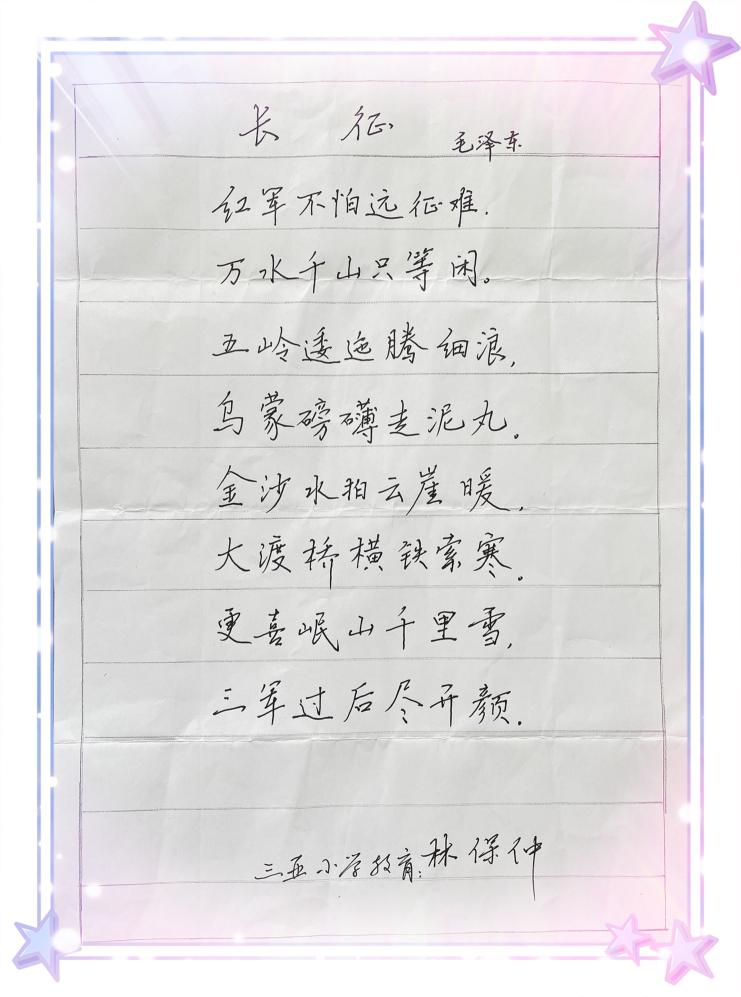 长 征
毛泽东
红军不怕远征难.
万水千山只等闲。
五岭逶迤腾细浪,
乌蒙磅礴走泥丸。
金沙水拍云崖暖,
大渡桥横铁索寒。
更喜岷山千里雪,
三军过后尽开颜.
三亚小学教育:林保仲